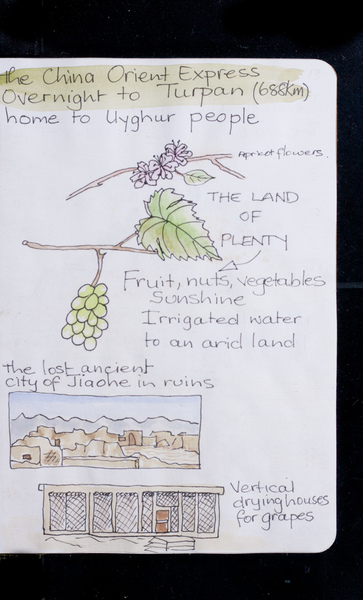 the China Orient Express
Overnight to Turpan (688km)
home to Uyghur people
Apricot flowers.
THE LAND
OF
PLENTY
Fruit, nuts, vegetables
Sunshine
Irrigated water
to an arid land
the lost ancient
city of Jiaohe in ruins
Vertical
drying houses
for grapes